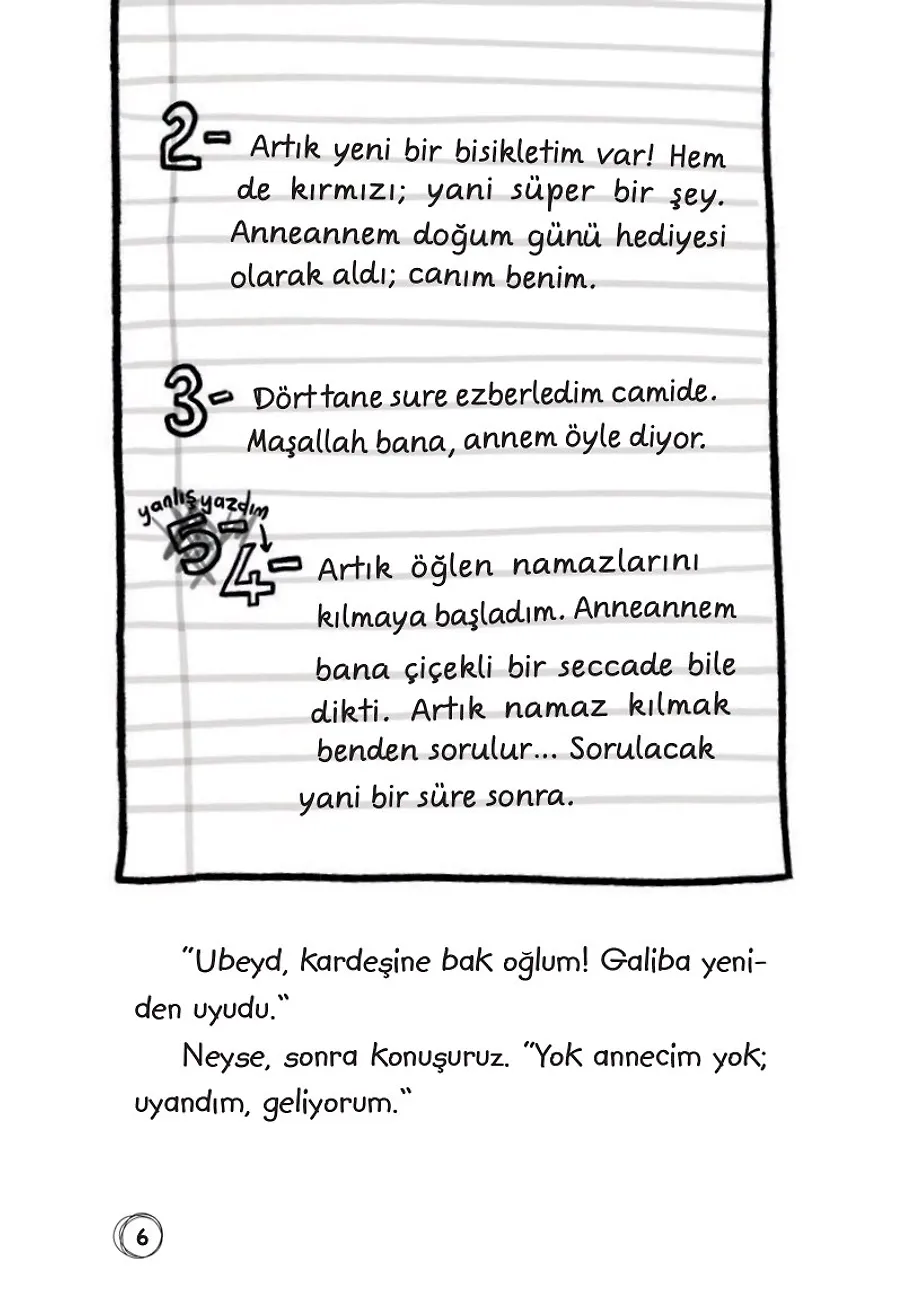 2- Artık yeni bir bisikletim var! Hem
de kırmızı; yani süper bir şey.
Anneannem doğum günü hediyesi
olarak aldı; canım benim.
3- Dört tane sure ezberledim camide.
Maşallah bana, annem öyle diyor.
yanlış yazdım
5-
4- Artık öğlen namazlarını
kılmaya başladım. Anneannem
bana çiçekli bir seccade bile
dikti. Artık namaz kılmak
benden sorulur... Sorulacak
yani bir süre sonra.
"Ubeyd, kardeşine bak oğlum! Galiba yeni-
den uyudu."
Neyse, sonra konuşuruz. "Yok annecim yok;
uyandım, geliyorum."
6